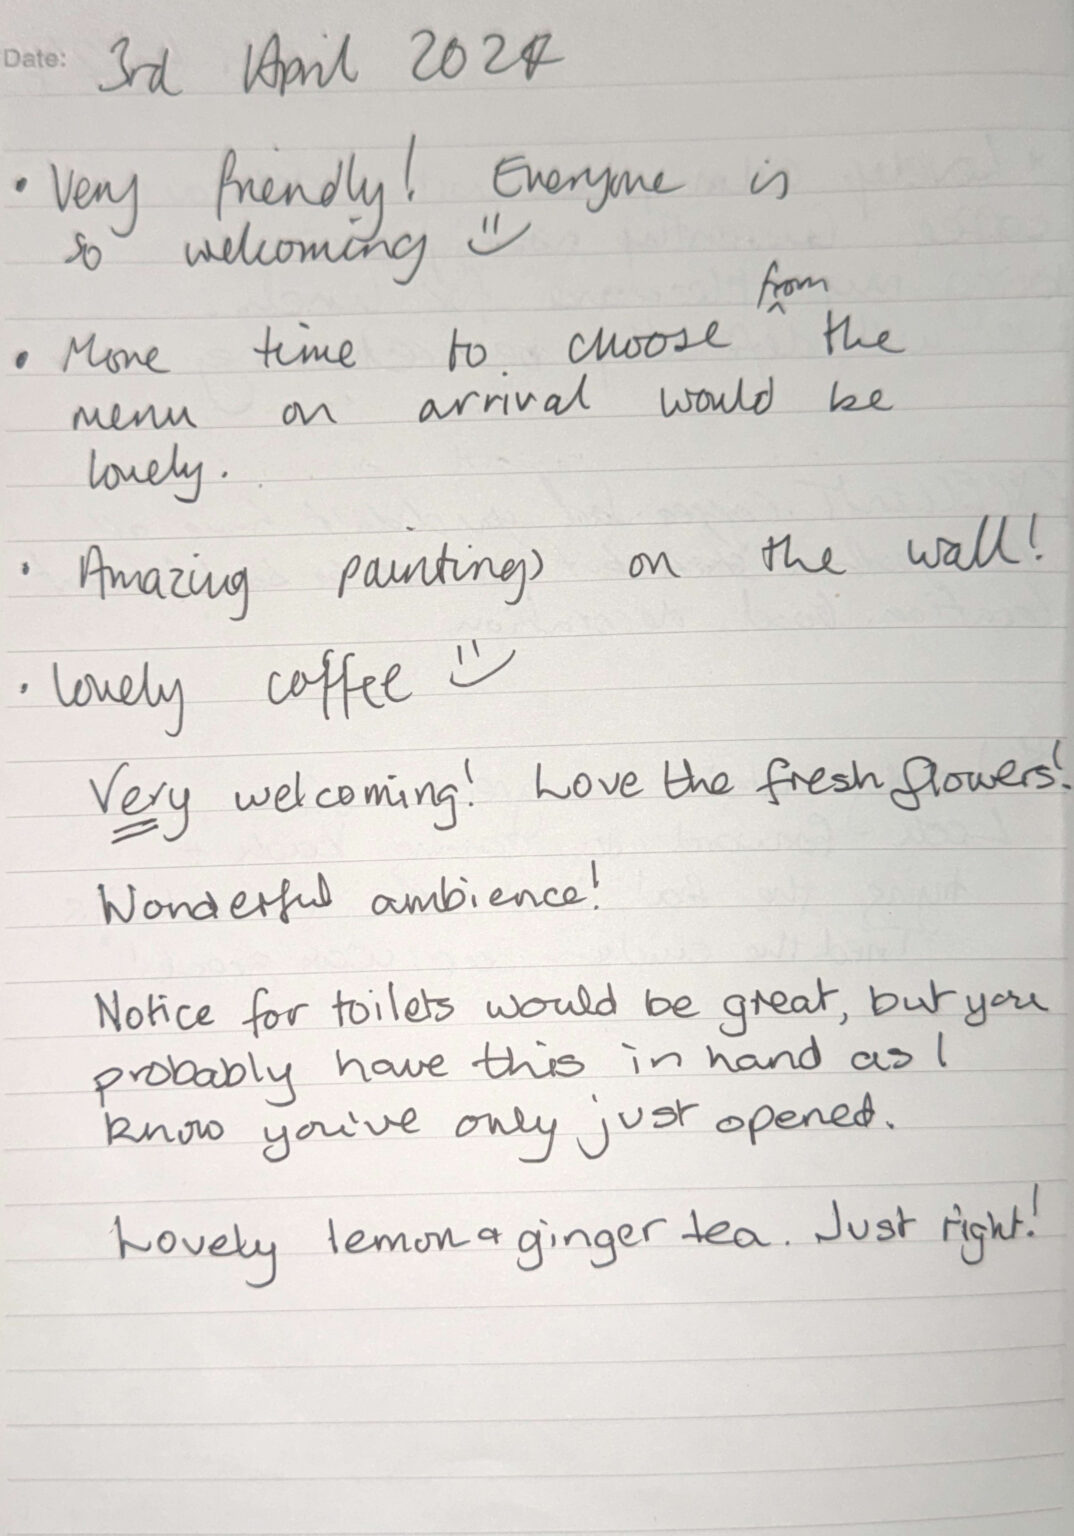 Date: 3rd April 2024
• Very friendly! Everyone is
so welcoming
from
• More time to choose ^ the
menu on arrival would be
lovely.
• Amazing paintings on the wall!
• Lovely coffee
Very welcoming! Love the fresh flowers!
Wonderful ambience!
Notice for toilets would be great, but you
probably have this in hand as I
know you've only just opened.
Lovely lemon & ginger tea. Just right!